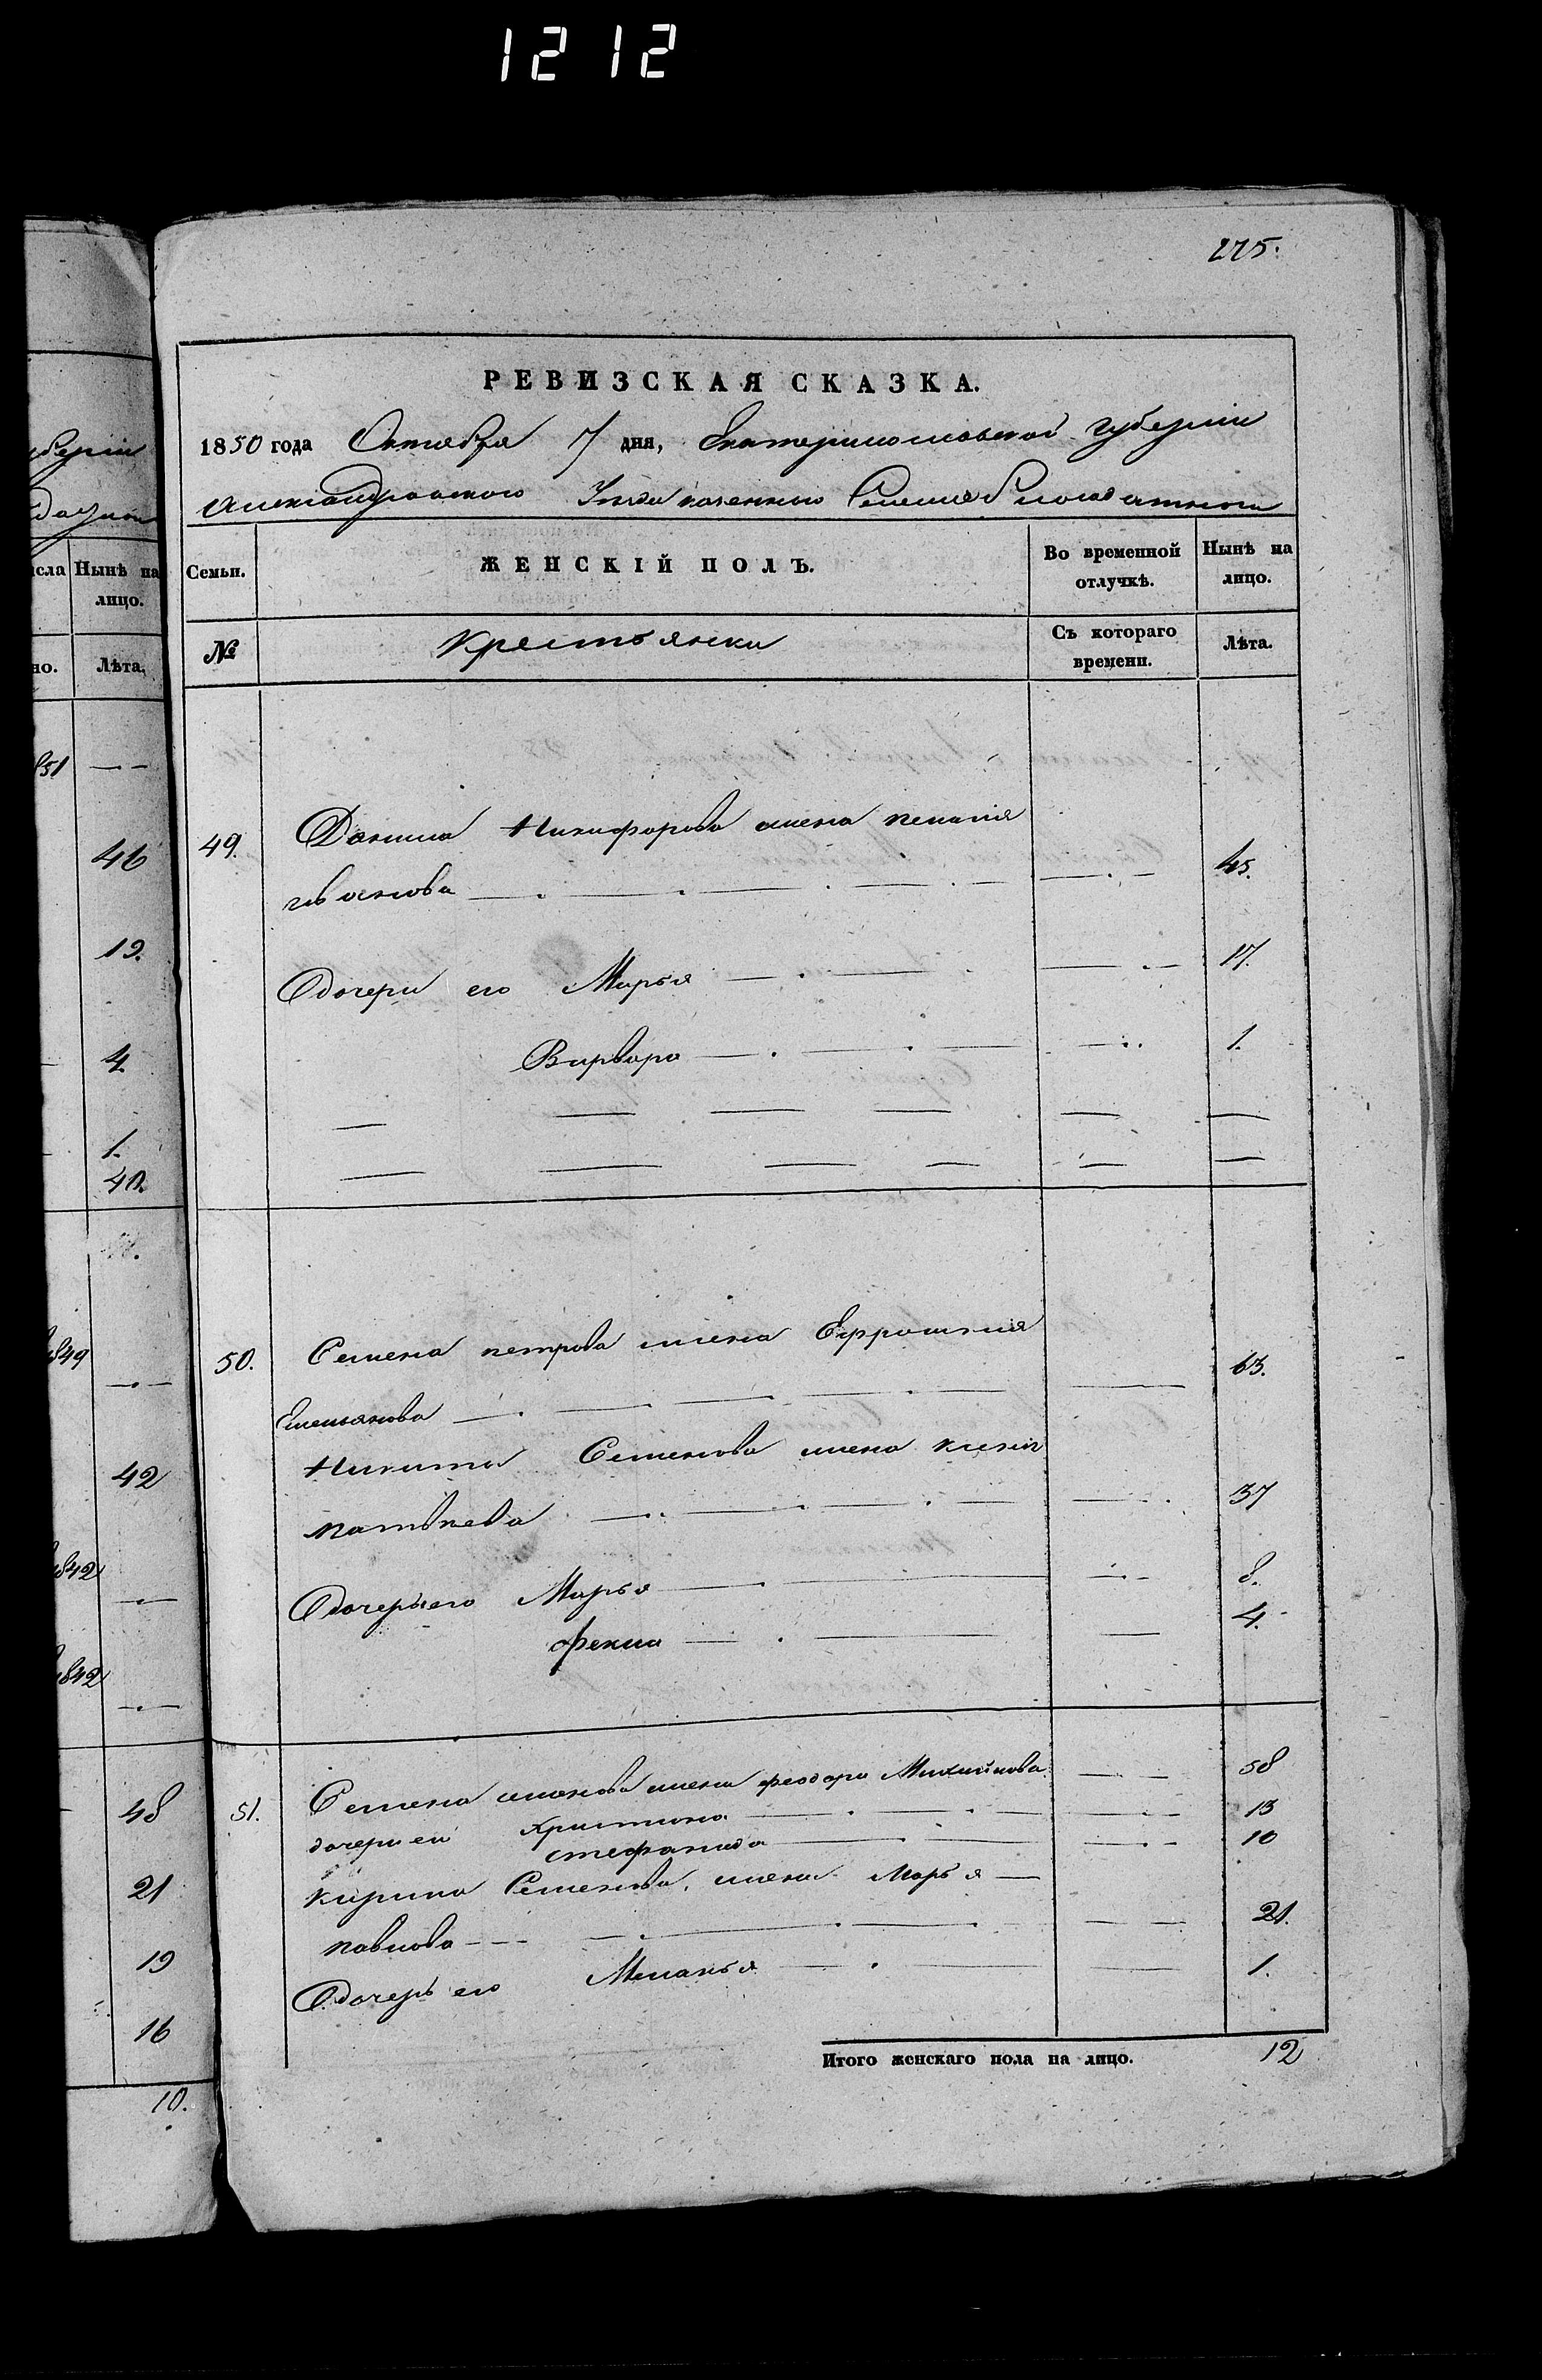 1212
275.
РЕВИЗСКАЯ СКАЗКА.
1850 года Октября 7 дня, Екатеринославской губерніи
Александровского Уезда казеннаго Селенія
Семьи. ЖЕНСКІЙ ПОЛЪ. Во временной отлучкѣ. Нынѣ на лицо.
№ Крестьянки Съ котораго времени. Лѣта.
49. Данила Никифорова жена
іванова 45.
Одочери его Марья 17.
Варвара 1.
50. Семена петрова жена Ефросинія
Емельянова 63.
Никиты Семенова жена
матвеева 37
Одочери его Марья 8.
фекла 4.
51. Семена жена феодора Михайлова 58
дочери ей Христина 13
стефанида 10
кирила Семенова жена Марья
павлова 21.
Одочерь его Меланья 1.
Итого женскаго пола на лицо. 12
берніи
сла Нынѣ на лицо.
но. Лѣта.
851
46
19.
4
1.
40.
849
42
842
842
48
21
19
16
10.